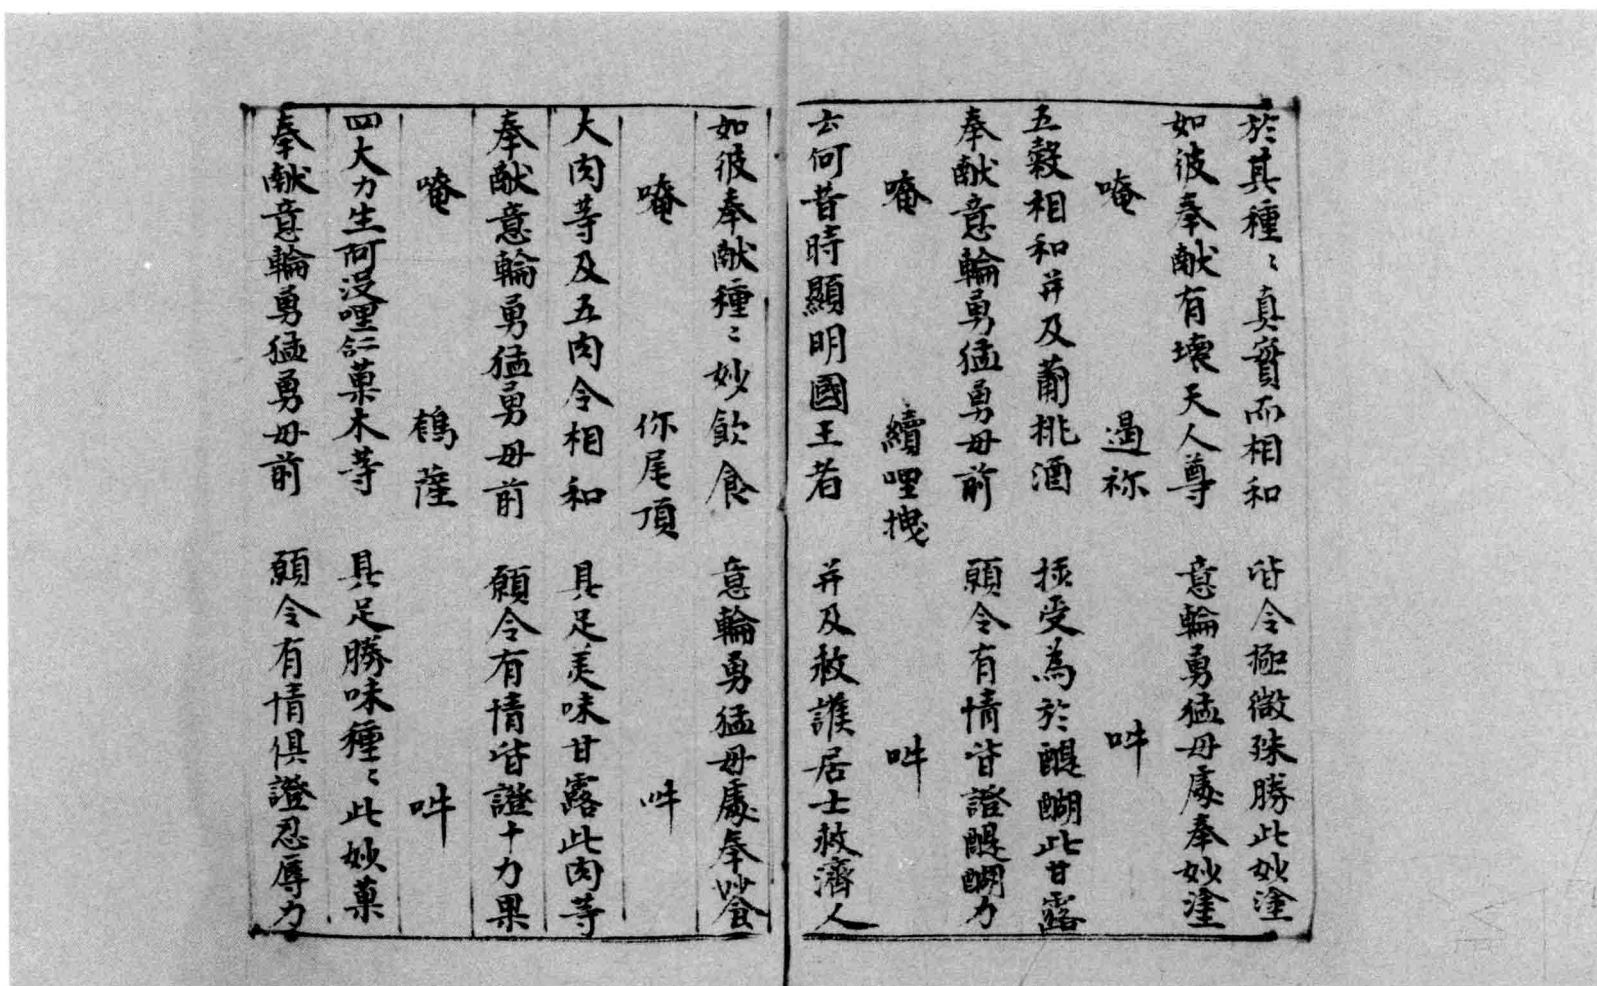 於其種〻真實而相和　皆令極微殊勝此妙塗
如彼奉献有壞天人尊　意輪勇猛母處奉妙塗
唵　遏祢　吽
五穀相和并及蒱桃酒　攝受為於醍醐此甘露
奉献意輪勇猛勇母前　願令有情皆證醍醐力
唵　續哩拽　吽
云何昔時顯明國王者　并及救護居士救濟人
如彼奉献種〻妙飲食　意輪勇猛母處奉妙食
唵　你尾頂　吽
大肉等及五肉令相和　具足美味甘露此肉等
奉献意輪勇猛勇母前　願令有情皆證十力果
唵　鶴薩　吽
四大力生阿没哩二合菓木等　具足勝味種〻此妙菓
奉献意輪勇猛勇母前　願令有情俱證忍辱力